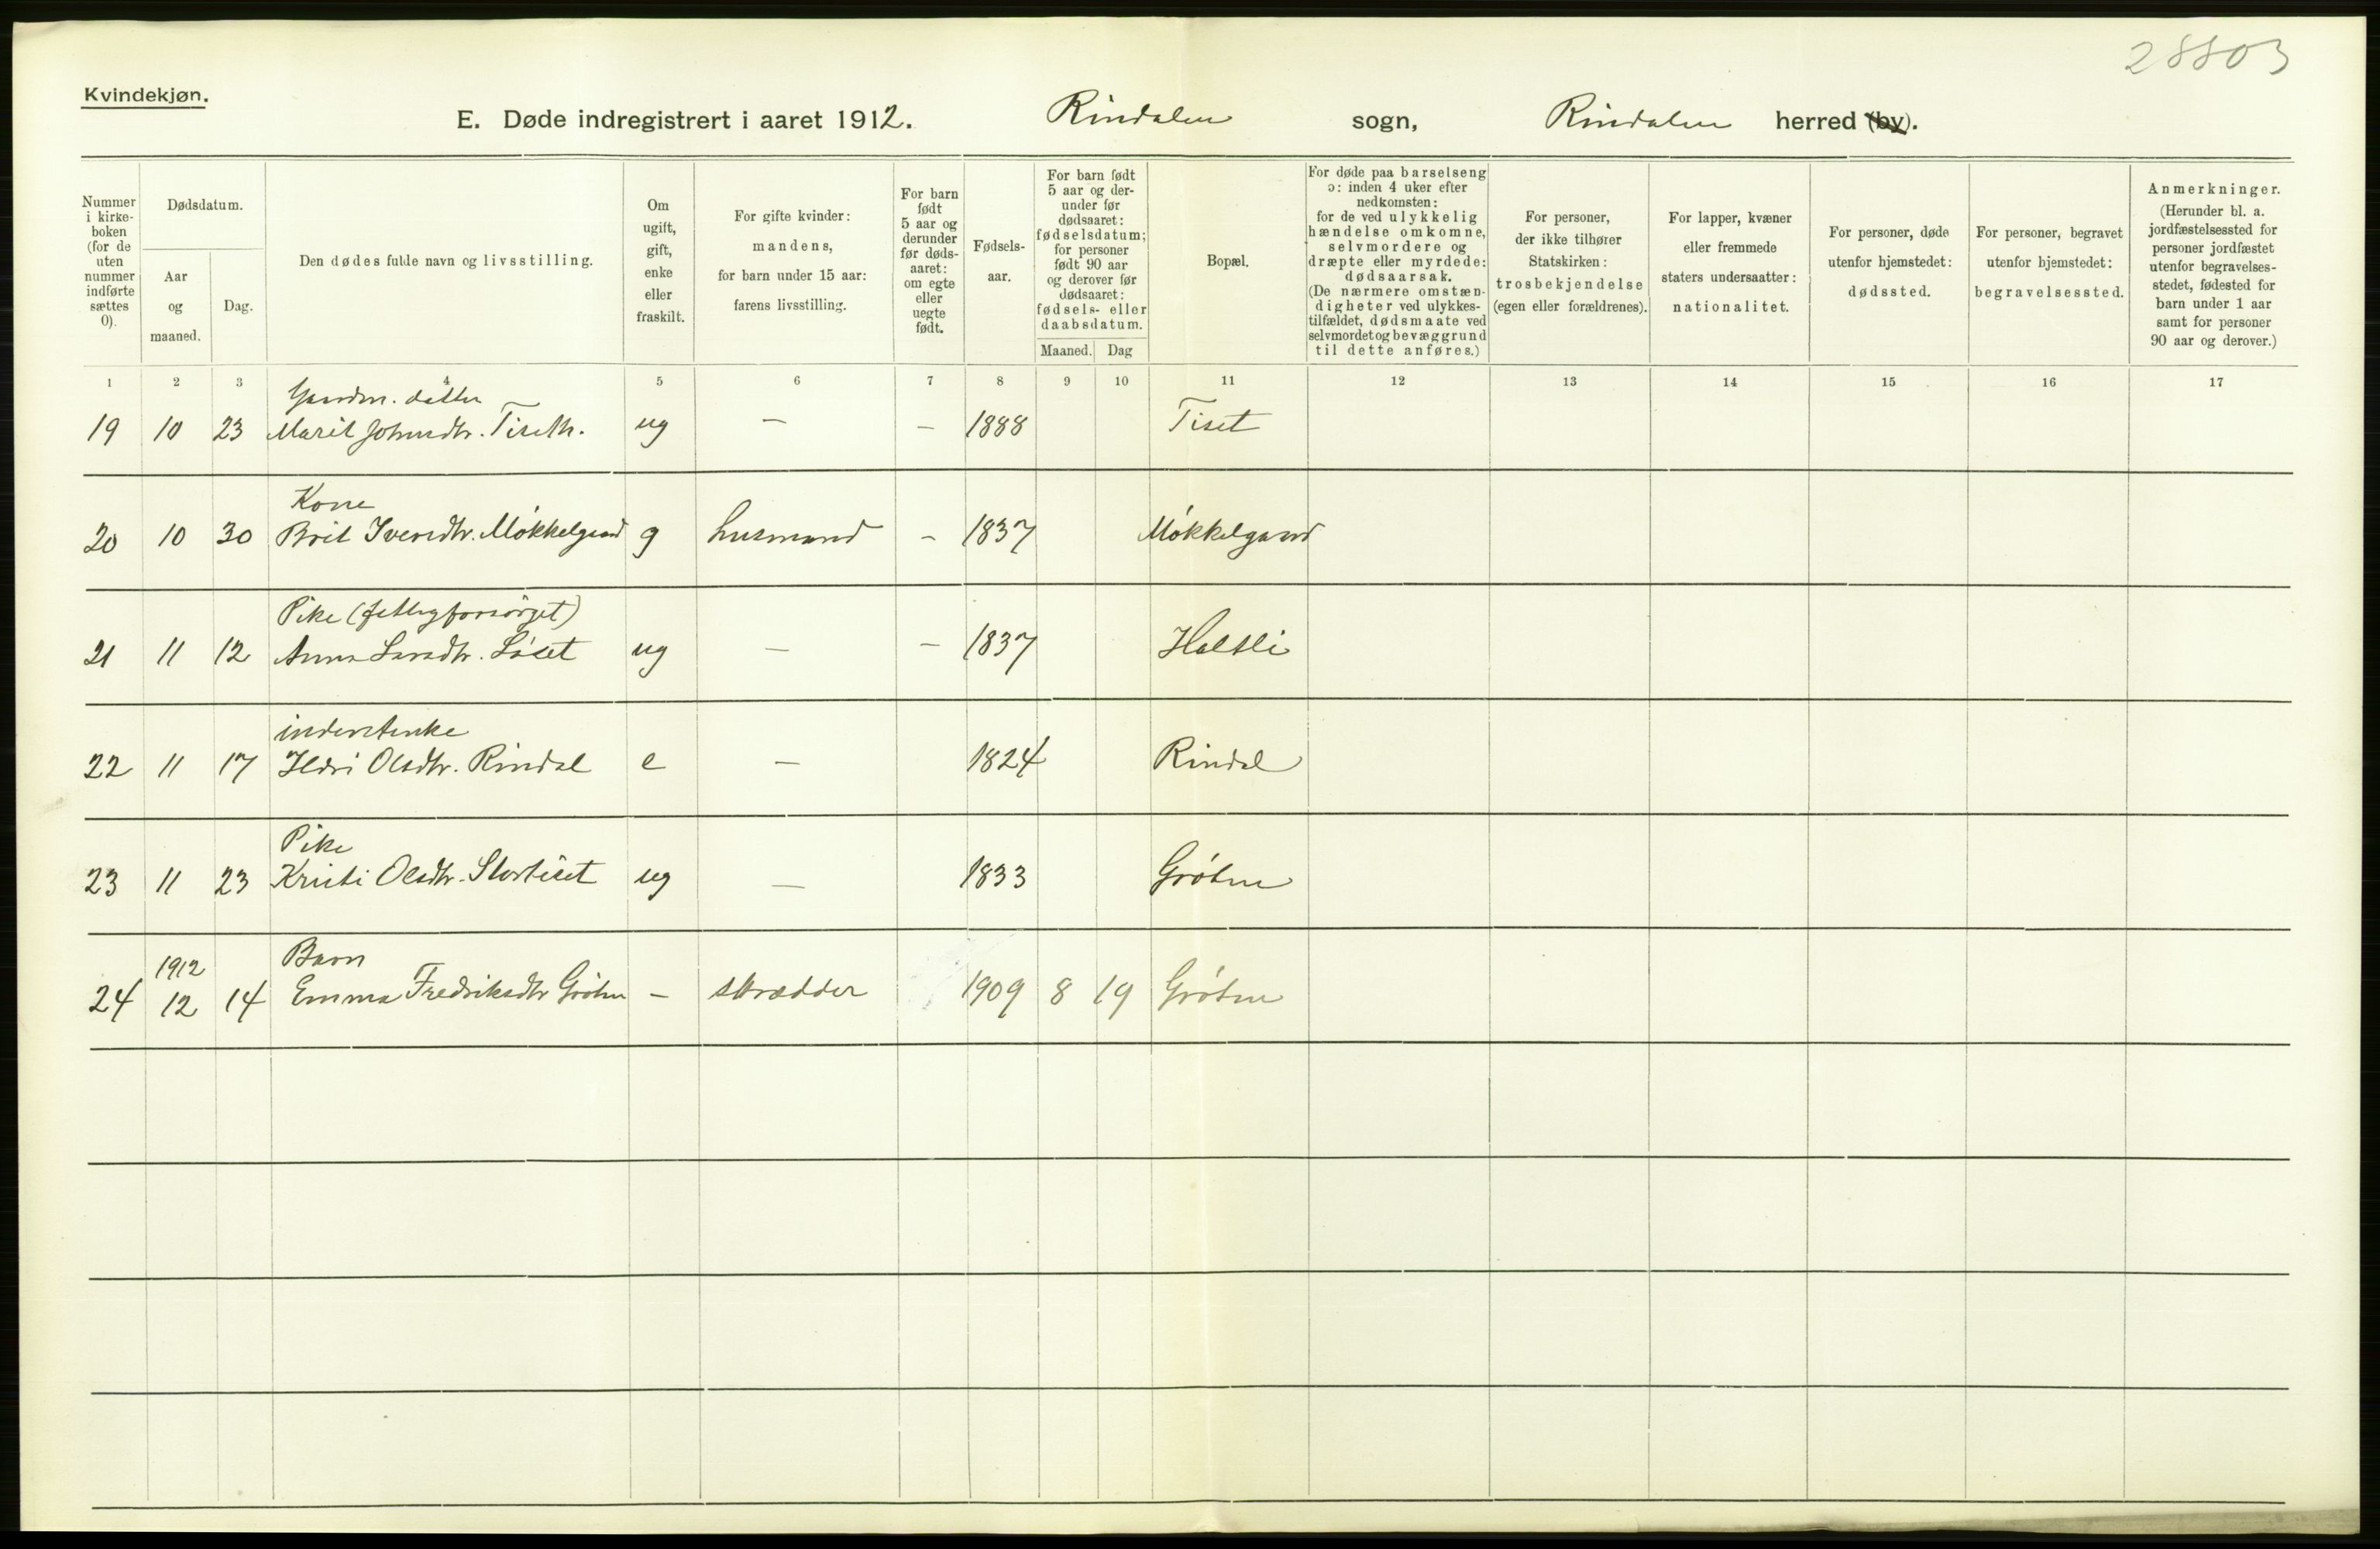 28803
Kvindekjøn.
E. Døde indregistrert i aaret 1912. Rindalen sogn, Rindalen herred (by).
Nummer i kirkeboken (for de uten nummer indførte sættes 0).
Dødsdatum.
Aar og maaned.
Dag.
Den dødes fulde navn og livsstilling.
Om ugift, gift, enke eller fraskilt.
For gifte kvinder: mandens, for barn under 15 aar: farens livsstilling.
For barn født 5 aar og derunder før dødsaaret: om egte eller uegte født.
Fødselsaar.
For barn født 5 aar og derunder før dødsaaret: fødselsdatum; for personer født 90 aar og derover før dødsaaret: fødsels- eller daabsdatum.
Maaned. Dag
Bopæl.
For døde paa barselseng ɔ: inden 4 uker efter nedkomsten: for de ved ulykkelig hændelse omkomne, selvmordere og dræpte eller myrdede: dødsaarsak. (De nærmere omstændigheter ved ulykkestilfældet, dødsmaate ved selvmordet og bevæggrund til dette anføres.)
For personer, der ikke tilhører Statskirken: trosbekjendelse (egen eller forældrenes).
For lapper, kvæner eller fremmede staters undersaatter: nationalitet.
For personer, døde utenfor hjemstedet: dødssted.
For personer, begravet utenfor hjemstedet: begravelsessted.
Anmerkninger. (Herunder bl. a. jordfæstelsessted for personer jordfæstet utenfor begravelsesstedet, fødested for barn under 1 aar samt for personer 90 aar og derover.)
1 2 3 4 5 6 7 8 9 10 11 12 13 14 15 16 17
Gaardm. datter
19 10 23 Marit Johnsdtr. Tiseth. ug — — 1888 Tiset
Kone
20 10 30 Brit Iversdtr. Møkkelgaard g husmand - 1837 Møkkelgaard
Pike (fattigforsørget)
21 11 12 Anna Larsdtr. Løset ug — — 1837 Haltli
inderstenke
22 11 17 Ildri Olsdtr. Rindal e — 1824 Rindal
Pike
23 11 23 Kristi Olsdtr. Stortiset ug — 1833 Grøten
1912 Barn
24 12 14 Emma Fredriksdtr Grøten — skrædder 1909 8 19 Grøten